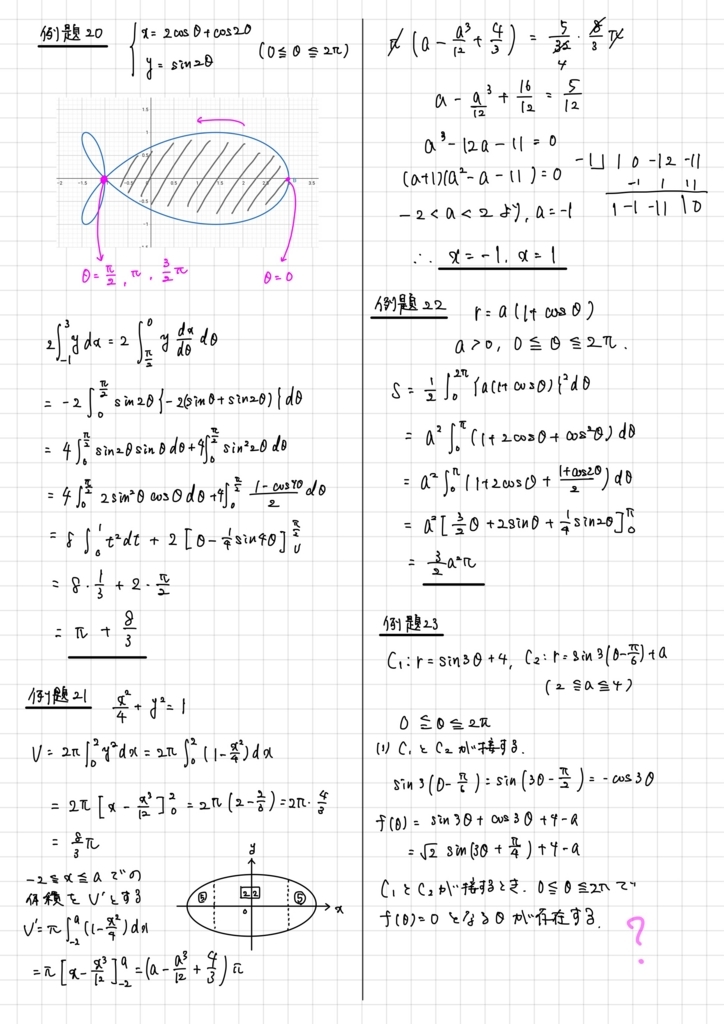 例題20
x = 2cosθ + cos2θ
y = sin2θ
(0 ≦ θ ≦ 2π)
θ = π/2, π, 3/2 π
θ = 0
2∫_{-1}^{3} y dx = 2∫_{π/2}^{0} y dx/dθ dθ
= -2∫_{0}^{π/2} sin2θ{-2(sinθ + sin2θ)}dθ
= 4∫_{0}^{π/2} sin2θ sinθ dθ + 4∫_{0}^{π/2} sin²2θ dθ
= 4∫_{0}^{π/2} 2sin²θ cosθ dθ + 4∫_{0}^{π/2} (1-cos4θ)/2 dθ
= 8∫_{0}^{1} t²dt + 2[θ - 1/4 sin4θ]_{0}^{π/2}
= 8・1/3 + 2・π/2
= π + 8/3
例題21
x²/4 + y² = 1
V = 2π∫_{0}^{2} y²dx = 2π∫_{0}^{2} (1 - x²/4)dx
= 2π[x - x³/12]_{0}^{2} = 2π(2 - 2/3) = 2π・4/3
= 8/3 π
-2 ≦ x ≦ a での
体積を V' とする
V' = π∫_{-2}^{a} (1 - x²/4)dx
= π[x - x³/12]_{-2}^{a} = (a - a³/12 + 4/3)π
y
⑤ 22 ⑤
0
x
π(a - a³/12 + 4/3) = 5/32 4・8/3 π
a - a³/12 + 16/12 = 5/12
a³ - 12a - 11 = 0
(a+1)(a² - a - 11) = 0
-1 1 0 -12 -11
-1 1 11
1 -1 -11 0
-2 < a < 2 より, a = -1
∴ x = -1, x = 1
例題22
r = a(1 + cosθ)
a > 0, 0 ≦ θ ≦ 2π.
S = 1/2 ∫_{0}^{2π} {a(1 + cosθ)}²dθ
= a²∫_{0}^{π} (1 + 2cosθ + cos²θ)dθ
= a²∫_{0}^{π} (1 + 2cosθ + (1+cos2θ)/2)dθ
= a²[3/2 θ + 2sinθ + 1/4 sin2θ]_{0}^{π}
= 3/2 a²π
例題23
C₁: r = sin3θ + 4, C₂: r = sin3(θ - π/6) + a
(2 ≦ a ≦ 4)
0 ≦ θ ≦ 2π
(1) C₁ と C₂ が接する.
sin3(θ - π/6) = sin(3θ - π/2) = -cos3θ
f(θ) = sin3θ + cos3θ + 4 - a
= √2 sin(3θ + π/4) + 4 - a
C₁ と C₂ が接するとき. 0 ≦ θ ≦ 2π で
f(θ) = 0 となる θ が存在する.
?